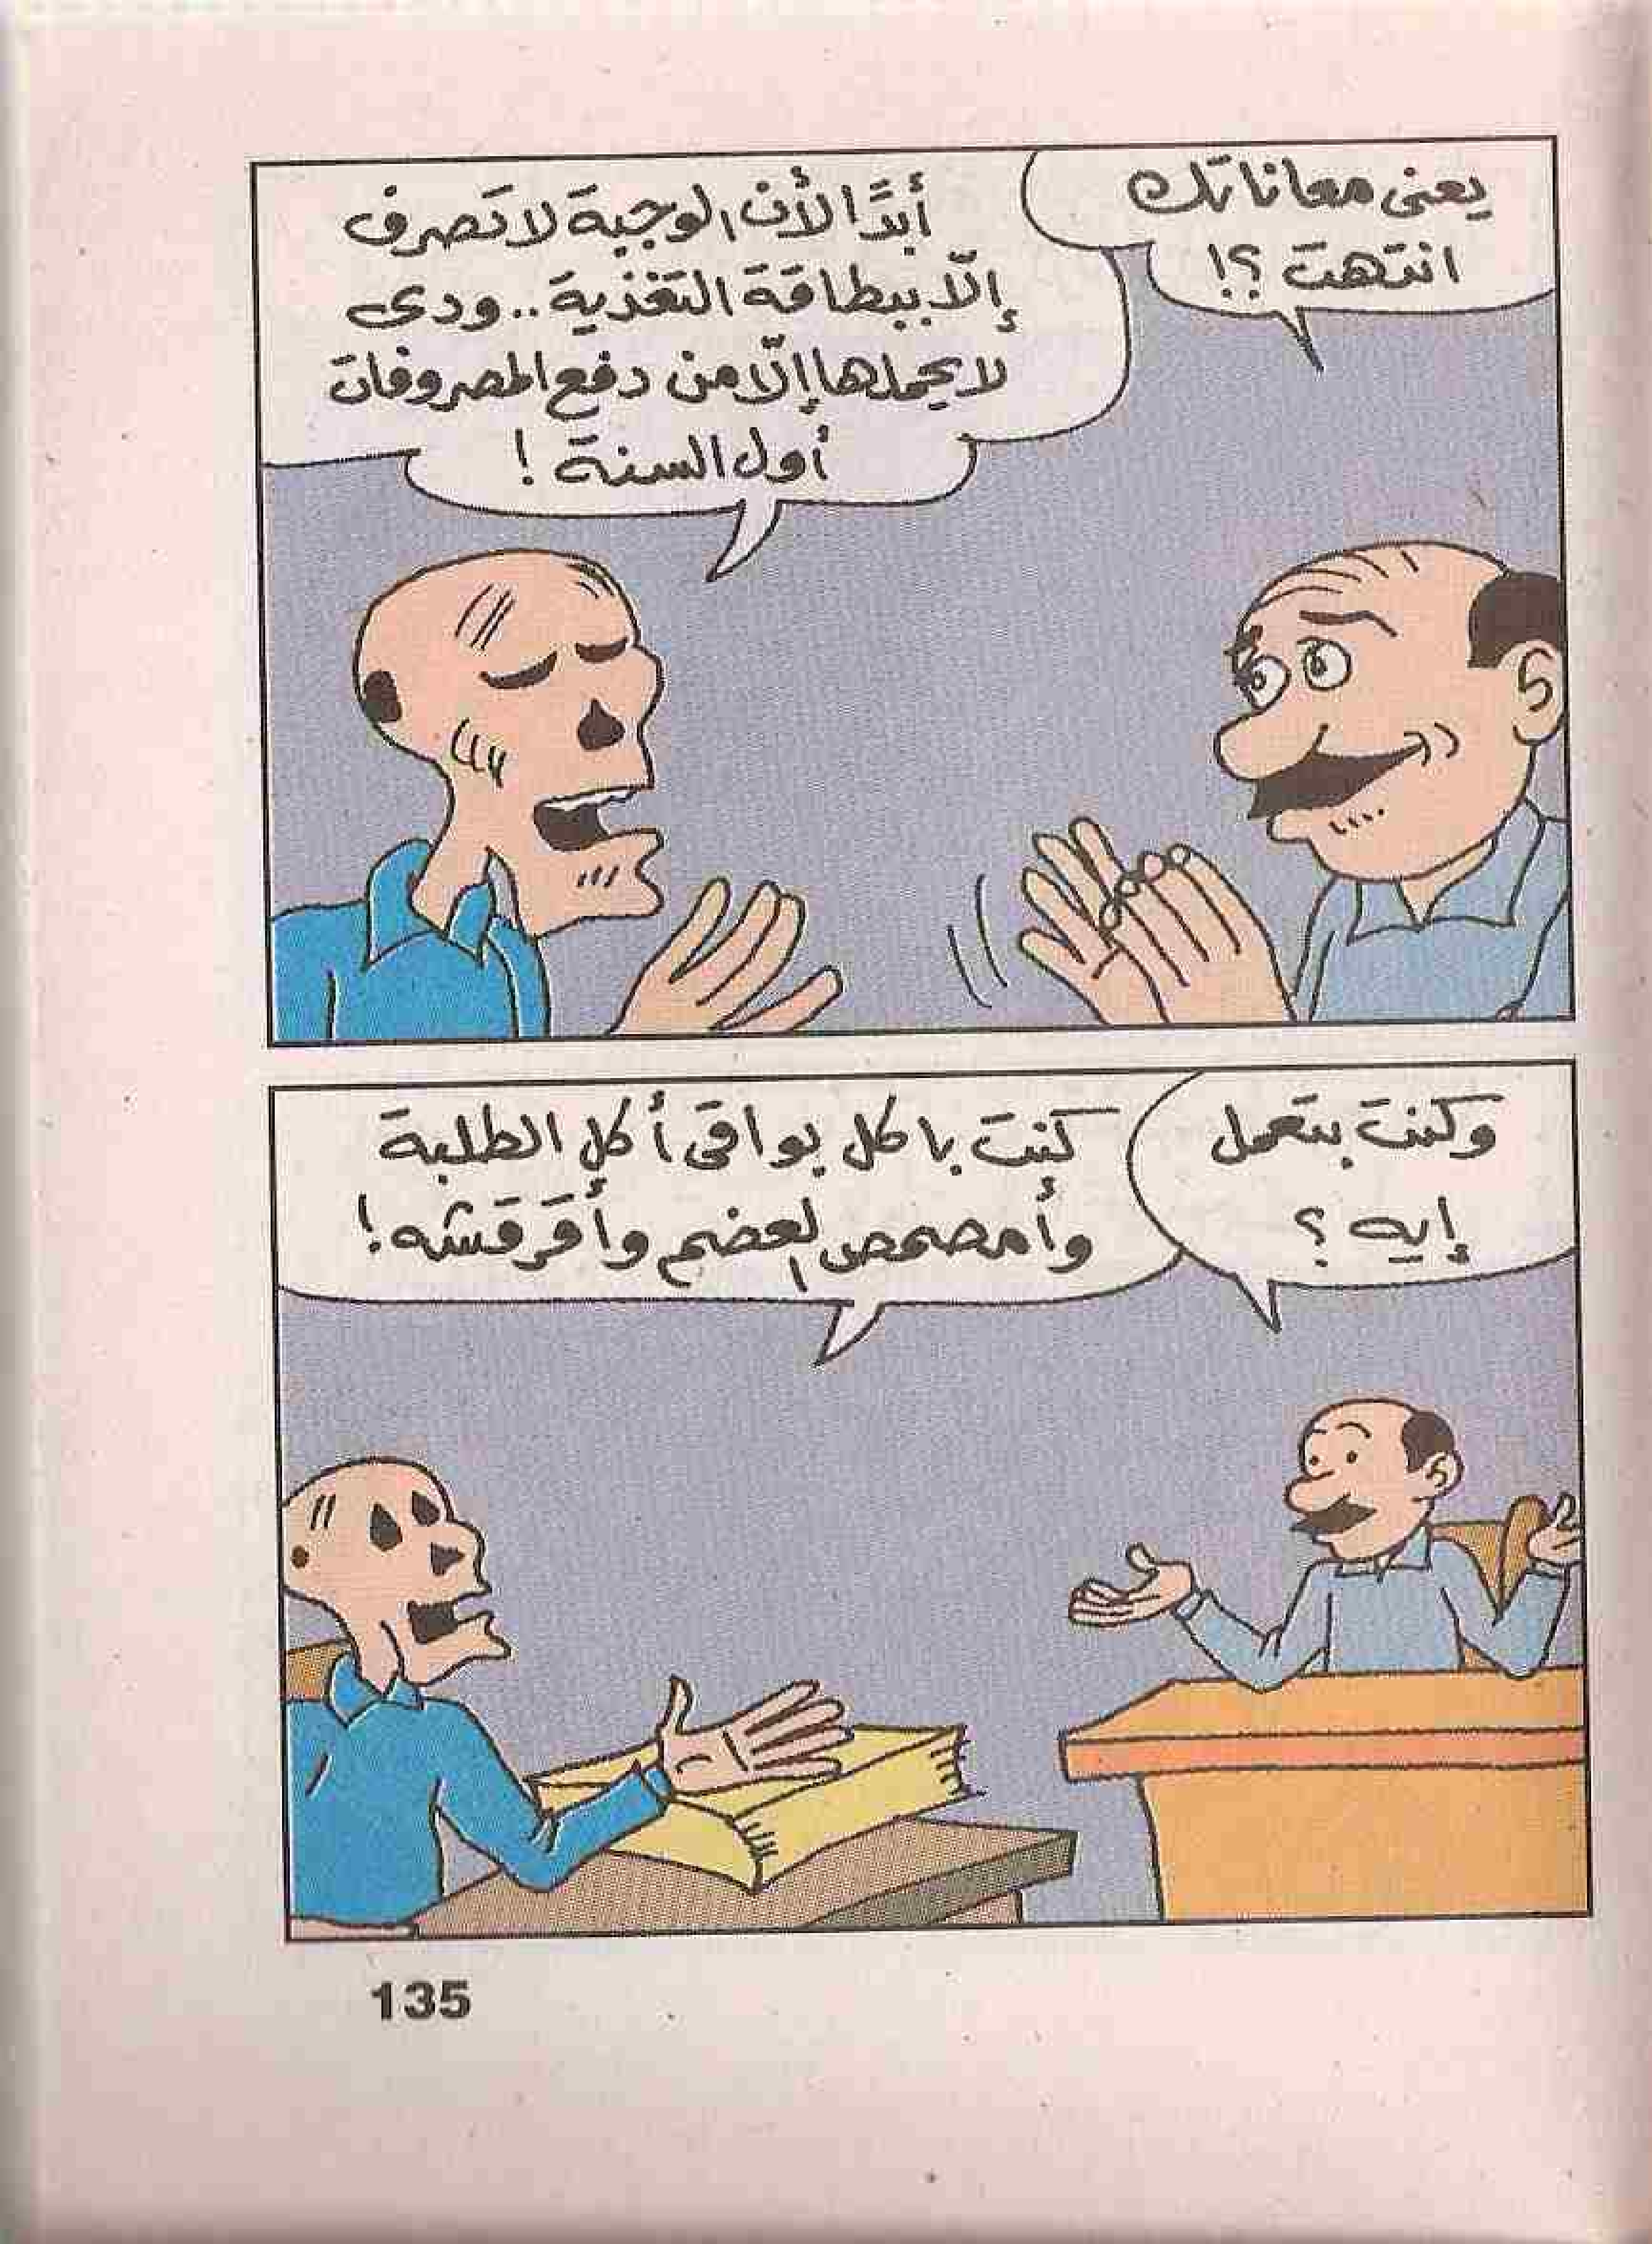 يعنى معاناتك
انتهت ؟!
أبدًا لأن الوجبة لا تصرف
إلّا ببطاقة التغذية .. ودى
لا يحملها إلّا من دفع المصروفات
أول السنة !
وكنت بتعمل
إيه ؟
كنت باكل بواقى أكل الطلبة
وأمصمص العضم وأقرقشه !
135